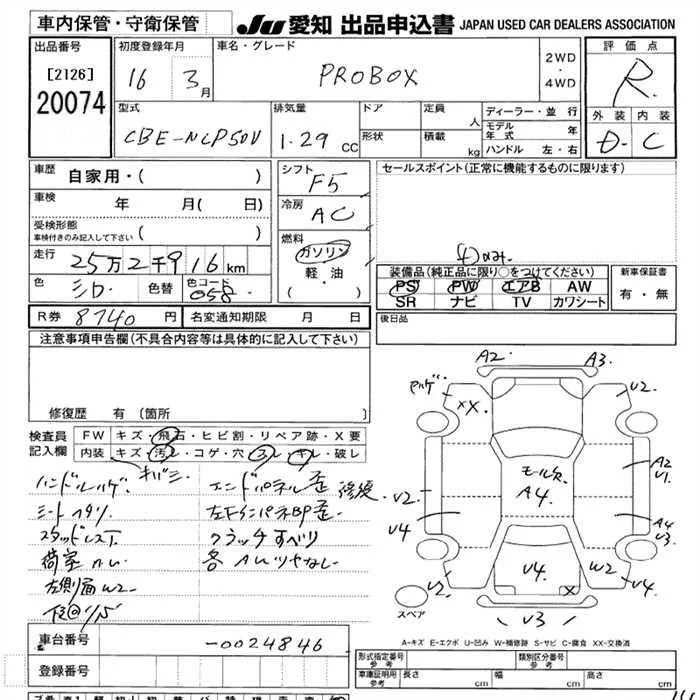 車内保管・守衛保管
JU 愛知 出品申込書 JAPAN USED CAR DEALERS ASSOCIATION
出品番号
[2126]
20074
初度登録年月
16 3月
車名・グレード
PROBOX
2WD
・
4WD
評価点
R
外装 内装
D C
型式
CBE-NCP50V
排気量
1.29 CC
ドア
形状
定員 人
積載 kg
ディーラー・並行
モデル年式 年
ハンドル 左・右
車歴 自家用・( )
車検 年 月( 日)
受検形態
車検付きのみ記入して下さい ( )
走行 25万2千916km
色 シロ 色替 色コード 058
シフト F5
冷房 AC
燃料
ガソリン
軽・油
( ・ )
セールスポイント(正常に機能するものに限ります)
装備品(純正品に限り○をつけてください)
PS PW エアB AW
SR ナビ TV カワシート
新車保証書
有・無
R券 8740 円 名変通知期限 月 日
後日品
注意事項申告欄(不具合内容等は具体的に記入して下さい)
修復歴 有 (箇所
検査員記入欄
FW キズ・飛石・ヒビ割・リペア跡・X要
内装 キズ・汚レ・コゲ・穴・スレ・キレ・破レ
ハンドルハゲ
シートヘタリ
スタッドレス
左側面W2
エンドパネル歪 修復
クラッチすべり
各AWツヤなし
A2 A3
XX
U2
A2
U1
モール欠
A4
U2
U4
A4
U3
U2
U4
X
W2
U4
U3
スペア
A-キズ E-エクボ U-凹み W-補修跡 S-サビ C-腐食 XX-交換済
車台番号 -0024846
登録番号
形式指定番号
参考
類別区分番号
参考
車庫証明用
参考
長さ cm 幅 cm 高さ cm